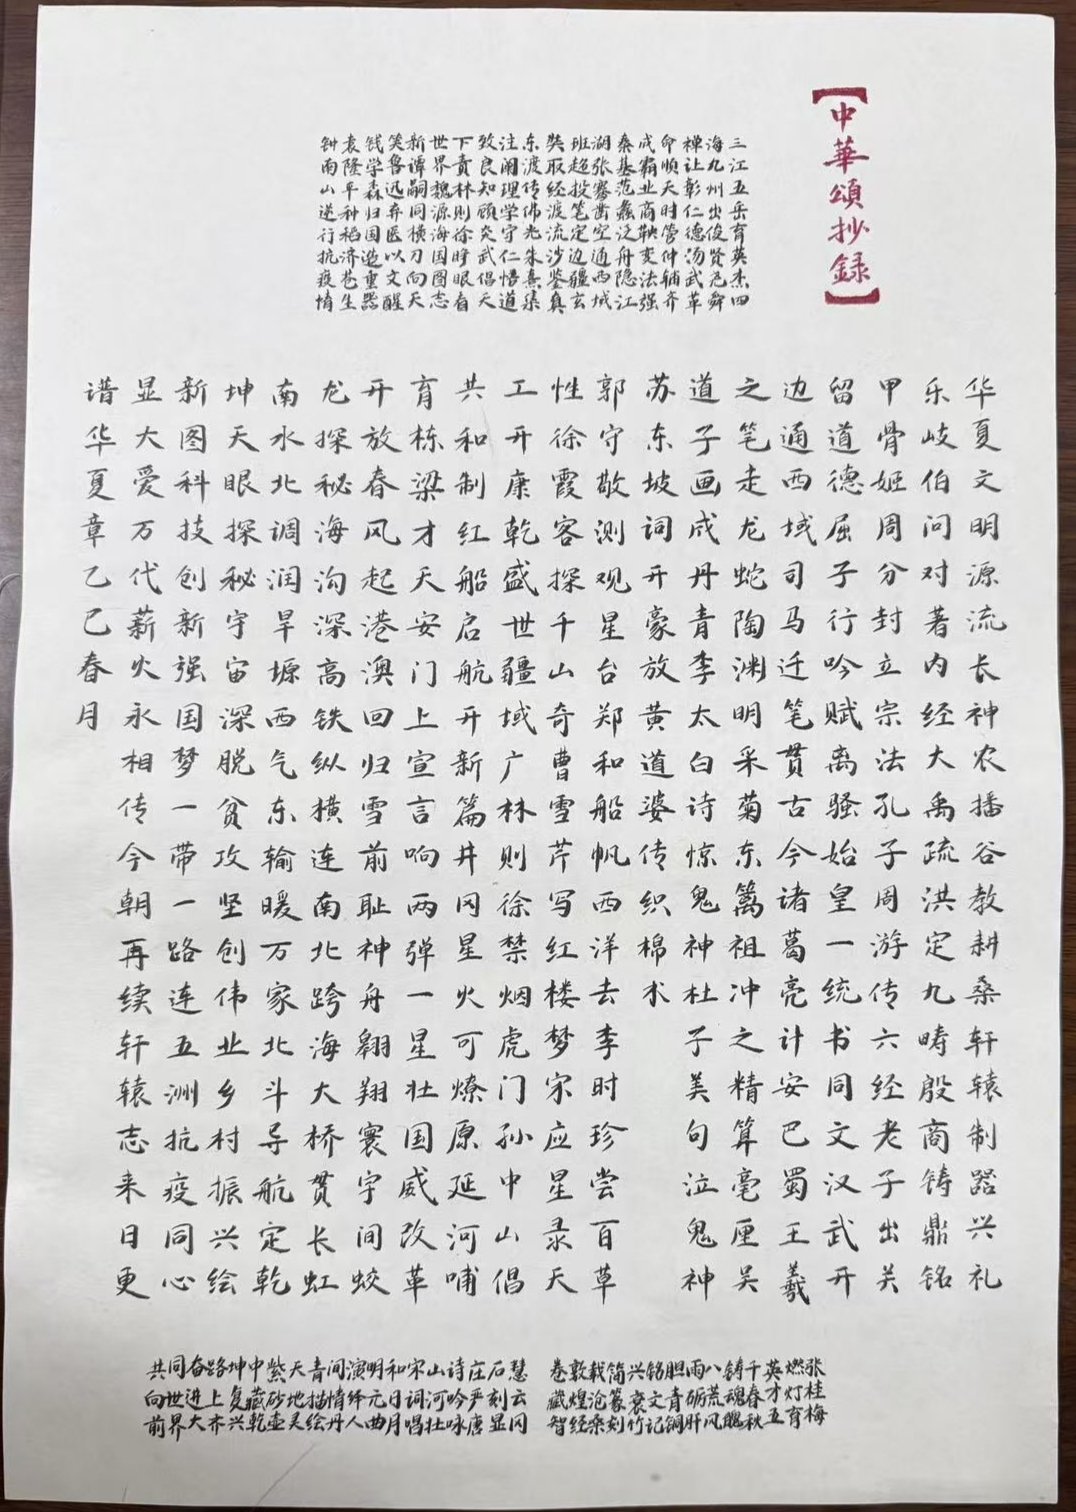 【中華頌抄録】
三江五岳育英杰四
海九州出俊贤尧舜
禅让彰仁德汤武革
命顺天时管仲辅齐
成霸业商鞅变法强
秦基范蠡泛舟隐江
湖张骞凿空通西域
班超投笔定边疆玄
奘取经渡流沙鉴真
东渡传佛光朱熹集
注阐理学守仁悟道
致良知顾炎武倡天
下责林则徐睁眼看
世界魏源海国图志
新谭嗣同横刀向天
笑鲁迅弃医以文醒
钱学森归国造重器
袁隆平种稻济苍生
钟南山逆行抗疫情
华夏文明源流长神农播谷教耕桑轩辕制器兴礼
乐岐伯问对著内经大禹疏洪定九畴殷商铸鼎铭
甲骨姬周分封立宗法孔子周游传六经老子出关
留道德屈子行吟赋离骚始皇一统书同文汉武开
边通西域司马迁笔贯古今诸葛亮计安巴蜀王羲
之笔走龙蛇陶渊明采菊东篱祖冲之精算毫厘吴
道子画成丹青李太白诗惊鬼神杜子美句泣鬼神
苏东坡词开豪放黄道婆传织棉术
郭守敬测观星台郑和船帆西洋去李时珍尝百草
性徐霞客探千山奇曹雪芹写红楼梦宋应星录天
工开康乾盛世疆域广林则徐禁烟虎门孙中山倡
共和制红船启航开新篇井冈星火可燎原延河哺
育栋梁才天安门上宣言响两弹一星壮国威改革
开放春风起港澳回归雪前耻神舟翱翔寰宇间蛟
龙探秘海沟深高铁纵横连南北跨海大桥贯长虹
南水北调润旱塬西气东输暖万家北斗导航定乾
坤天眼探秘宇宙深脱贫攻坚创伟业乡村振兴绘
新图科技创新强国梦一带一路连五洲抗疫同心
显大爱万代薪火永相传今朝再续轩辕志来日更
谱华夏章乙巳春月
张桂梅
燃灯育
英才五
千春秋
铸魂魄
八荒风
雨砺肝
胆青铜
铭文记
兴衰竹
简篆刻
载沧桑
敦煌经
卷藏智
慧云冈
石刻显
庄严唐
诗吟咏
山河壮
宋词唱
和日月
明元曲
演绎人
间情丹
青描绘
天地灵
紫砂壶
中藏乾
坤复兴
路上齐
奋进大
同世界
共向前